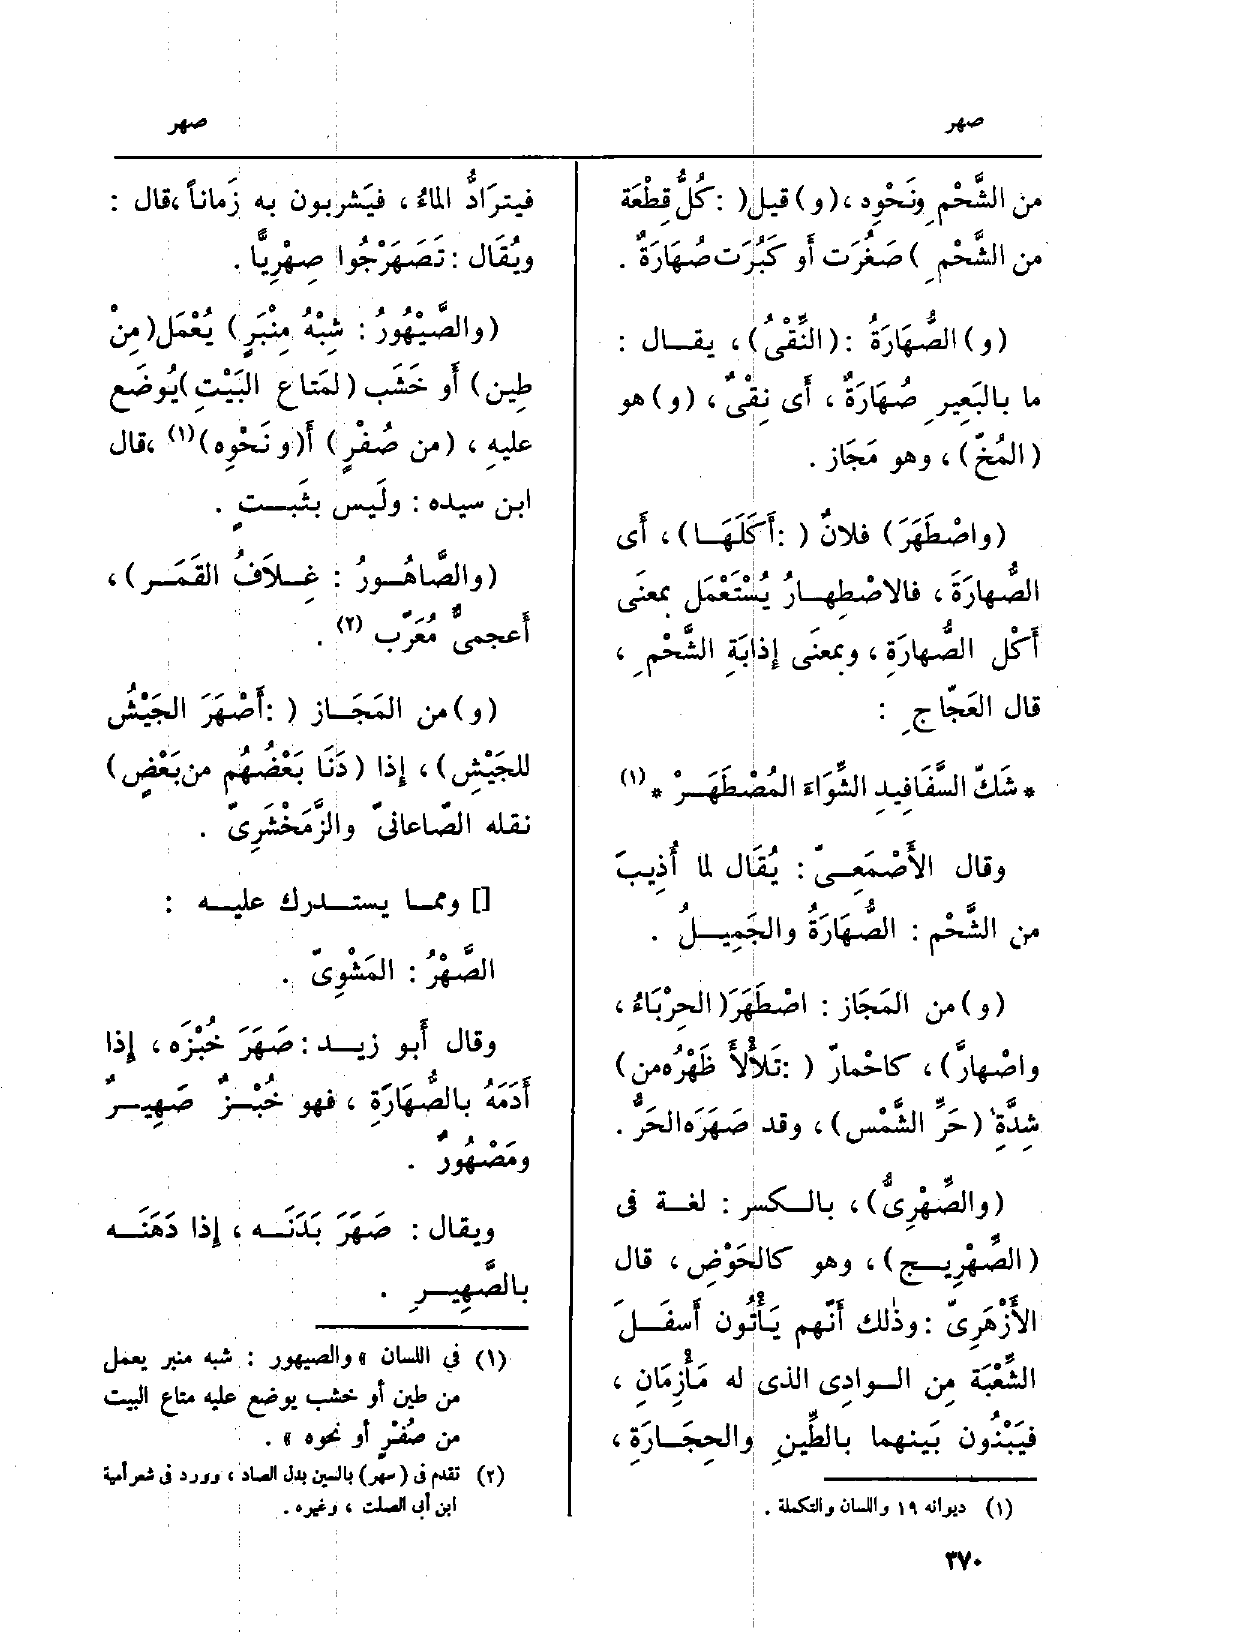 صهر
صهر
من الشَّحْمِ ونَحْوِه ،(و) قيل( :كُلُّ قِطْعَة
من الشَّحْمِ ) صَغُرَت أو كَبُرَت صُهَارَةٌ .
(و) الصُّهَارَةُ : (النِّقْىُ) ، يقــال :
ما بالبَعِير صُهَارَةٌ ، أى نِقْىٌ ، (و) هو
(المُخّ) ، وهو مَجَاز .
(واصْطَهَرَ) فلانٌ ( :أَكَلَهَــا) ، أى
الصُّهارَةَ ، فالاصْطِهــارُ يُسْتَعْمَل بمعنَى
أَكْل الصُّهارَةِ ، وبمعنَى إِذابَةِ الشَّحْمِ ،
قال العَجّاج ِ :
* شَكّ السَّفَافِيدِ الشِّوَاءَ المُصْطَهَــرْ * (١)
وقال الأَصْمَعِــىّ : يُقَال لما أُذِيبَ
من الشَّحْم : الصُّهَارَةُ والجَمِيــلُ .
(و) من المَجَاز : اصْطَهَرَ( الحِرْبَاءُ ،
واصْهارَّ) ، كاحْمارّ ( :تَلأْلأَ ظَهْرُه من)
شِدَّةِ (حَرِّ الشَّمْس) ، وقد صَهَرَه الحَرُّ .
(والصِّهْرِىُّ) ، بالــكسر : لغــة فى
(الصِّهْرِيــج) ، وهو كالحَوْضِ ، قال
الأَزْهَرِىّ : وذٰلك أَنَّهم يَأْتُون أَسفَــلَ
الشِّعْبَة مِن الــوادِى الذى له مَأْزِمَانِ ،
فيَبْنُون بَينهما بالطِّينِ والحِجَــارَةِ ،
(١) ديوانه ١٩ واللسان والتكملة .
٣٧٠
فيترَادُّ الماءُ ، فيَشربون به زَماناً ،قال :
ويُقَال : تَصَهْرَجُوا صِهْرِيًّا .
(والصَّيْهُورُ : شِبْهُ مِنْبَرٍ) يُعْمَل(مِنْ
طِين) أَو خَشَب (لمَتاع البَيْتِ)يُوضَع
عليهِ ، (من صُفْرٍ) أَ(و نَحْوِه)(١) ،قال
ابن سيده : ولَيس بثَبــتٍ .
(والصَّاهُــورُ : غِــلاَفُ القَمَــر) ،
أَعجمىٌّ مُعَرّب (٢) .
(و) من المَجَــاز ( :أَصْهَرَ الجَيْشُ
للجَيْشِ) ، إِذا (دَنَا بَعْضُهُم من بَعْضٍ)
نقله الصّاغانىّ والزَّمَخْشَرِىّ .
[] ومما يستــدرك عليــه :
الصَّهْرُ : المَشْوِىّ .
وقال أَبو زيــد : صَهَرَ خُبْزَه ، إِذا
أَدَمَهُ بالصُّهَارَةِ ، فهو خُبْــزٌ صَهِيــرٌ
ومَصْهُورٌ .
ويقال : صَهَرَ بَدَنَــه ، إِذا دَهَنَــه
بالصَّهِيــرِ .
(١) في اللسان « والصيهور : شبه منبر يعمل
من طين أو خشب يوضع عليه متاع البيت
من صُفْرٍ أو نحوه » .
(٢) تقدم فى (سهر) بالسين بدل الصاد ، وورد فى شعر أمية
ابن أبى الصلت ، وغيره .